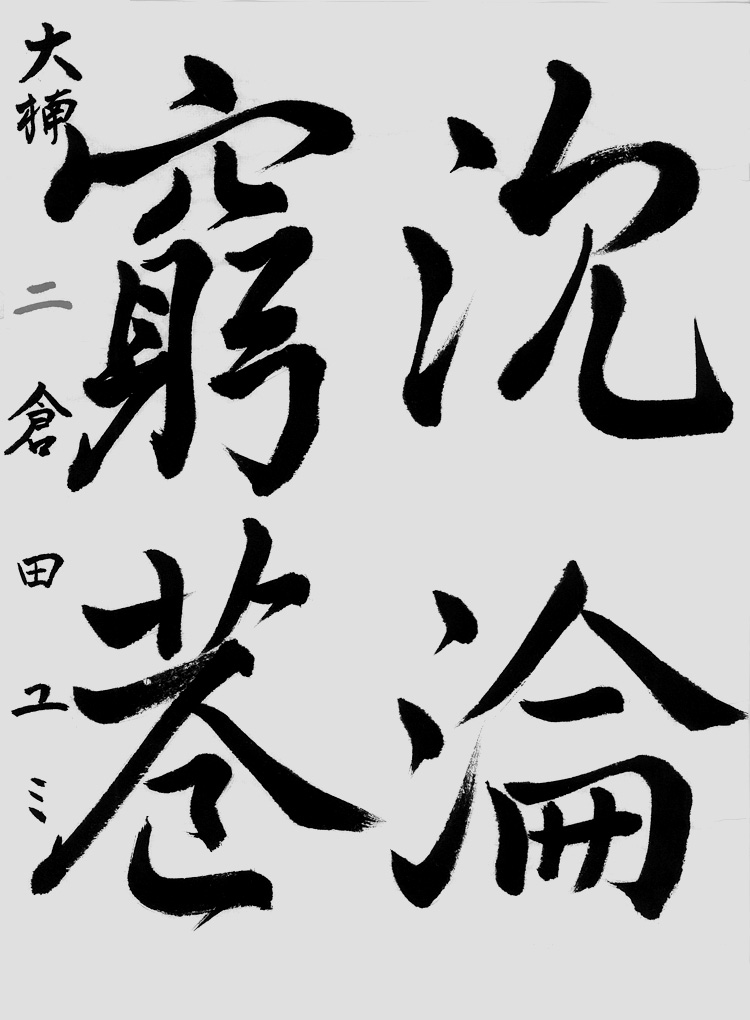 沈淪
窮巷
大楠 二 倉田ユミ